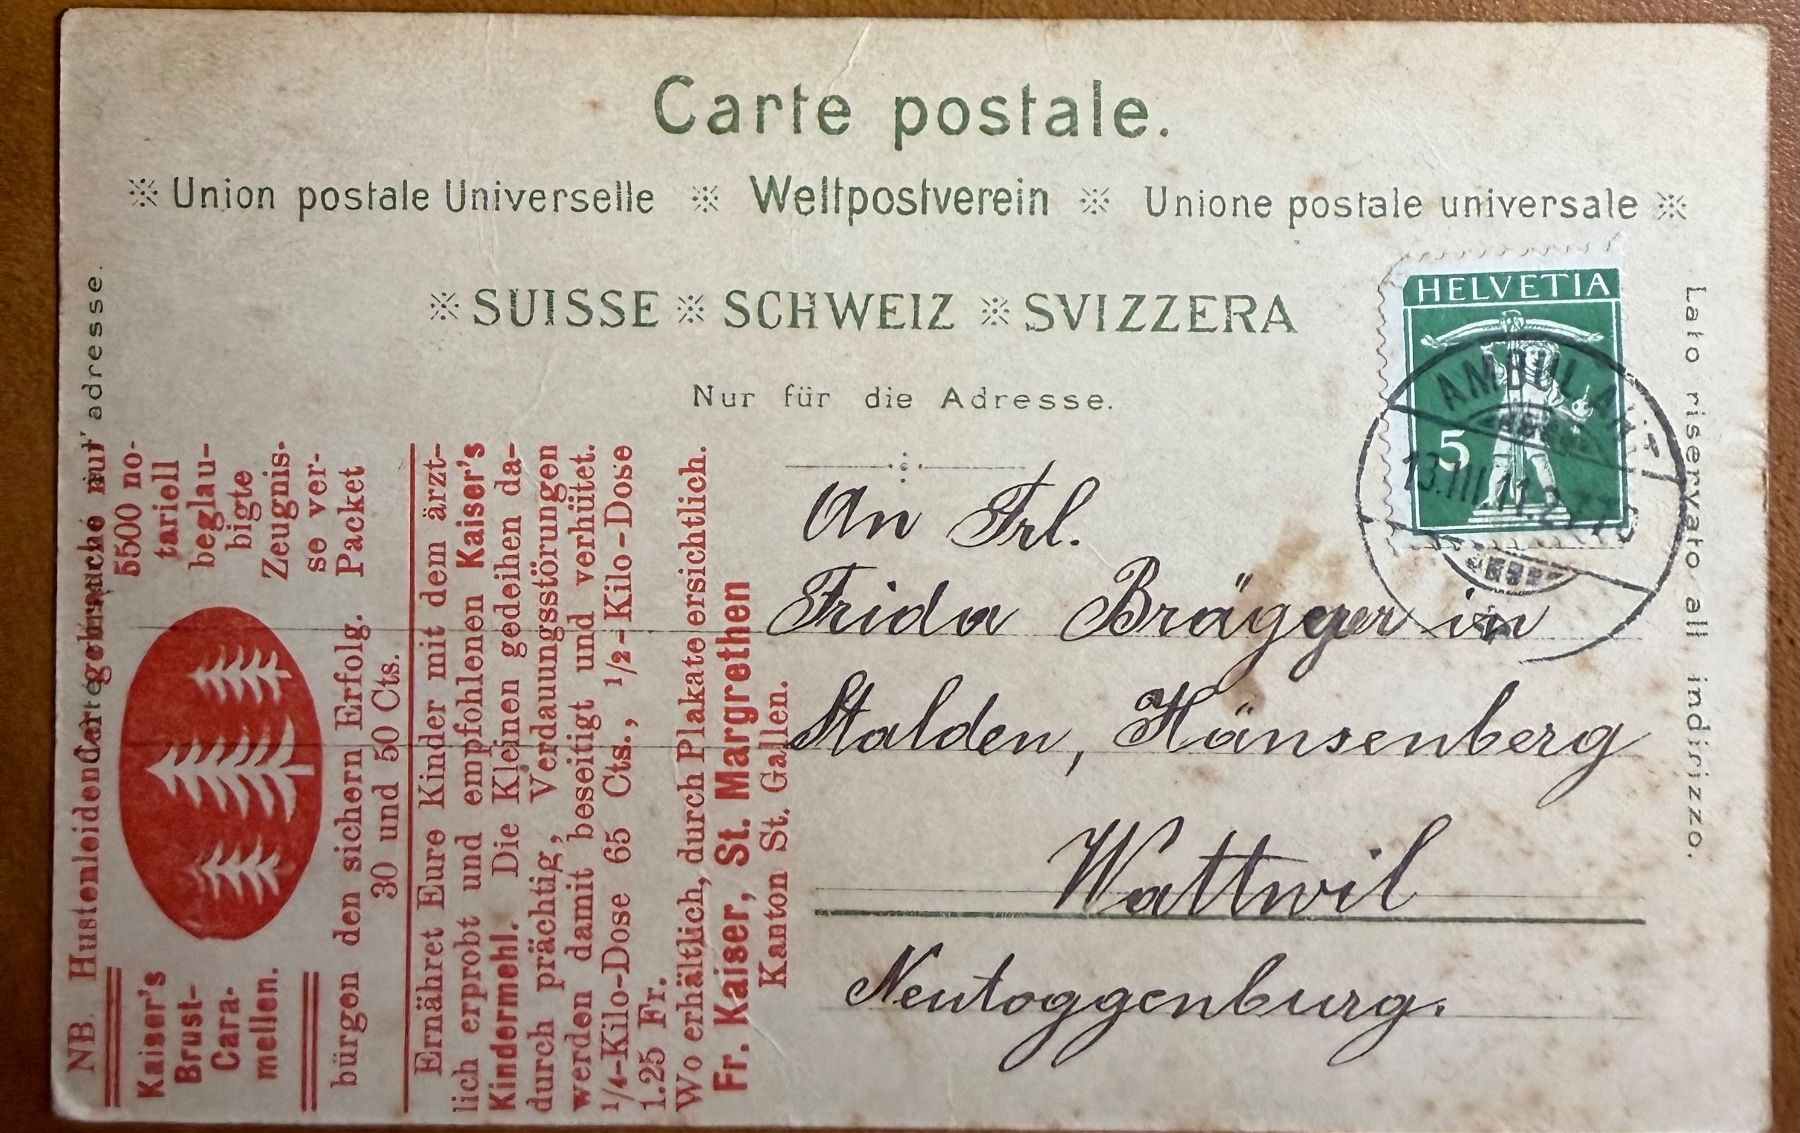 Carte postale.
※ Union postale Universelle ※ Weltpostverein ※ Unione postale universale ※
※ SUISSE ※ SCHWEIZ ※ SVIZZERA
Nur für die Adresse.
HELVETIA
5
AMBULANT
13.III.11
An Frl.
Frida Brägger in
Stalden, Hänsenberg
Wattwil
Neutoggenburg.
Lato riservato all' indirizzo.
adresse.
NB. Hustenleidende gebrauche nur
Kaiser's
Brust-
Cara-
mellen.
5500 no-
tariell
beglau-
bigte
Zeugnis-
se ver-
Packet
bürgen den sichern Erfolg.
30 und 50 Cts.
Ernähret Eure Kinder mit dem ärzt-
lich erprobt und empfohlenen Kaiser's
Kindermehl. Die Kleinen gedeihen da-
durch prächtig, Verdauungsstörungen
werden damit beseitigt und verhütet.
1/4-Kilo-Dose 65 Cts., 1/2-Kilo-Dose
1.25 Fr.
Wo erhältlich, durch Plakate ersichtlich.
Fr. Kaiser, St. Margrethen
Kanton St. Gallen.